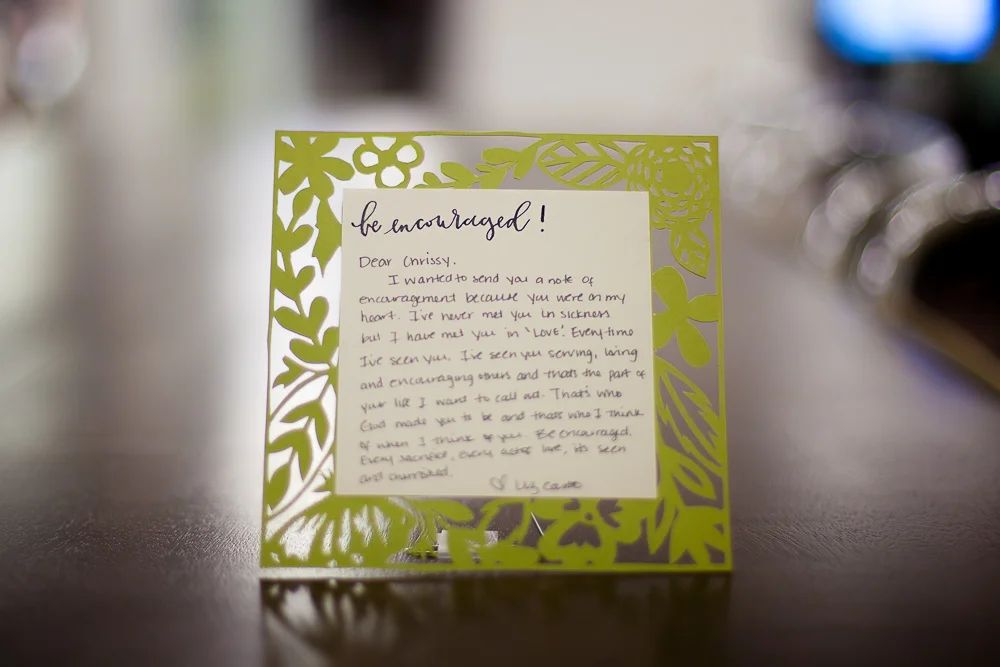 be encouraged!
Dear Chrissy.
I wanted to send you a note of
encouragement because you were on my
heart. I've never met you in sickness
but I have met you in 'LOVE'. Every time
I've seen you, I've seen you serving, loving
and encouraging others and thats the part of
your life I want to call out. That's who
God made you to be and thats who I think
of when I think of you. Be encouraged.
Every sacrifice, every act of love, its seen
and cherished.
♡